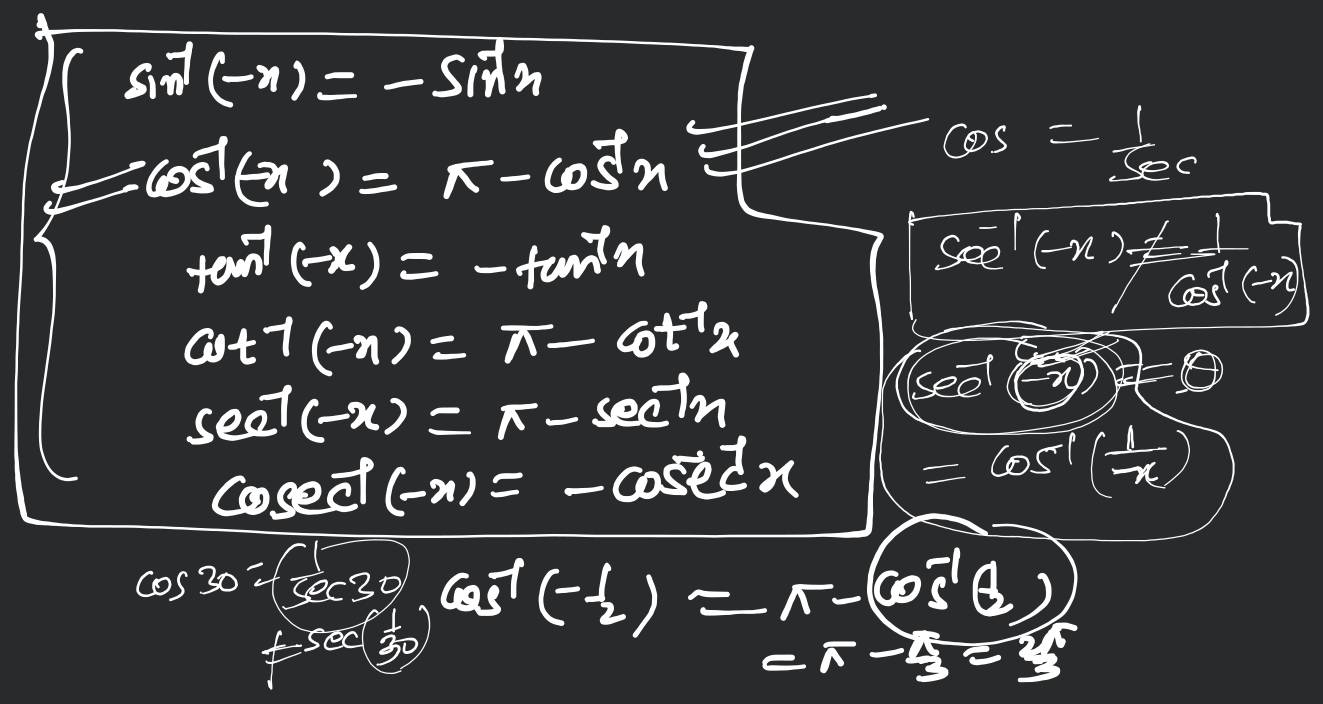 sin⁻¹(-x) = - sin⁻¹x
cos⁻¹(-x) = π - cos⁻¹x
tan⁻¹(-x) = - tan⁻¹x
cot⁻¹(-x) = π - cot⁻¹x
sec⁻¹(-x) = π - sec⁻¹x
cosec⁻¹(-x) = - cosec⁻¹x
cos = 1/sec
sec⁻¹(-x) ≠ 1/cos⁻¹(-x)
sec⁻¹(-x) = θ
= cos⁻¹(1/-x)
cos 30 = 1/sec 30
≠ sec(1/30)
cos⁻¹(-1/2) = π - cos⁻¹(1/2)
= π - π/3 = 2π/3